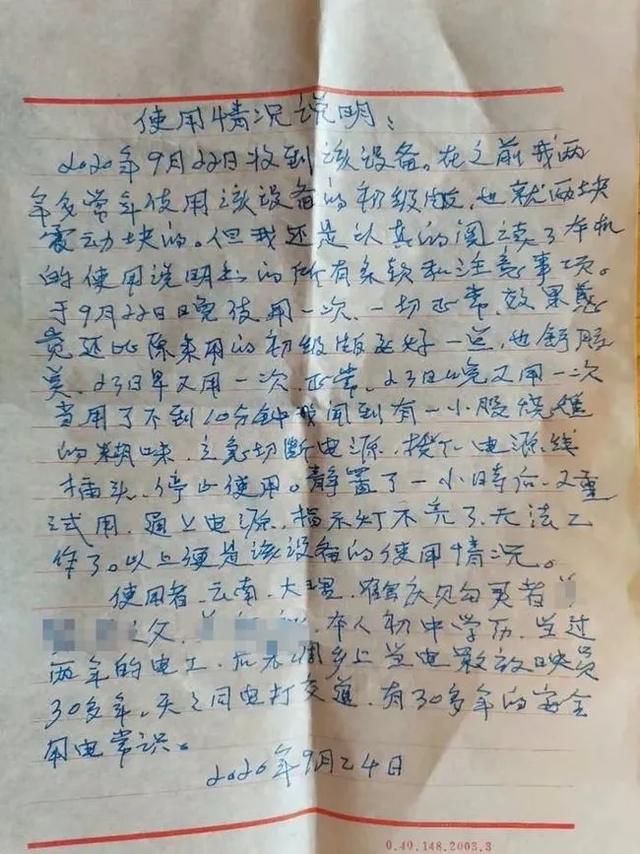 使用情况说明：
2020年9月22日收到该设备。在之前我两
年多常年使用该设备的初级版，也就两块
震动块的。但我还是认真的阅读了本机
的使用说明书的所有条款和注意事项。
于9月22日晚使用一次、一切正常、效果感
觉还比原来用的初级版还好一点，也舒服
些、23日早又用一次、正常、23日晚又用一次
当用了不到10分钟就闻到有一小股烧焦
的糊味、立急切断电源、拔下电源线
插头、停止使用。静置了一小时后、又重
试用、通上电源、指示灯不亮了、无法工
作了。以上便是该设备的使用情况。
使用者、云南、大理、鹤庆 购买者
之父、本人初中学历、当过
两年的电工、后 调乡上当电影放映员
30多年、天天同电打交道、有30多年的安全
用电常识。
2020年9月24日
0.40.148.2003.3